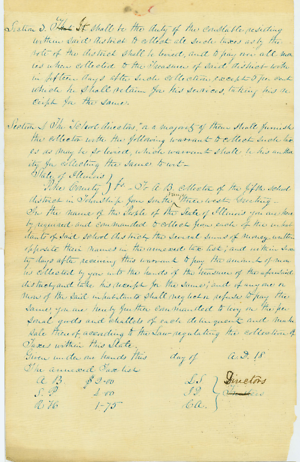 Section 3. That It shall be the duty of the constable residing
within said district to collect all such taxes as by the
vote of the district shall be levied, and to pay over all mon-
ies when collected to the Treasurer of said district with
in fifteen days after such collection except per cent
which he shall retain for his services, taking his re
ceipt for the same.
Section 4 The School directors, or a majority of them shall furnish
the collector with the following warrant to collect such tax
as may be so levied, which warrant shall be his autho
rity for collecting the same to wit—
State of Illinois
County } To A. B. collector of the fifth school
district in Township four South, Range west Greeting—
In the name of the People of the State of Illinois you are here
by required and commanded to collect from each of the inhabi
tants of said school district the several sums of money written
opposite their names in the annexed tax list, and within
ty days after receiving this warrant to pay the amount of mon
ies collected by you into the hands of the treasurer of the aforesaid
district, and take his receipt for the same; and if any one or
more of the said inhabitants shall neglect or refuse to pay the
same, you are hereby further commanded to levy on the per
sonal goods and chattels of each delinquent and make
sale thereof according to the law regulating the collection of
Taxes within this State.
Given under our hands this day of A.D. 18
The annexed Tax list
A B. $3.00
S. P. 2.00
1.75
Directors